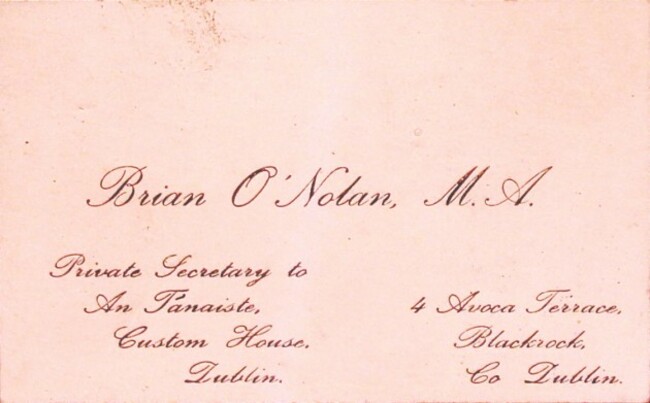 Brian O'Nolan, M.A.
Private Secretary to
An Tánaiste,
Custom House,
Dublin.
4 Avoca Terrace,
Blackrock,
Co Dublin.